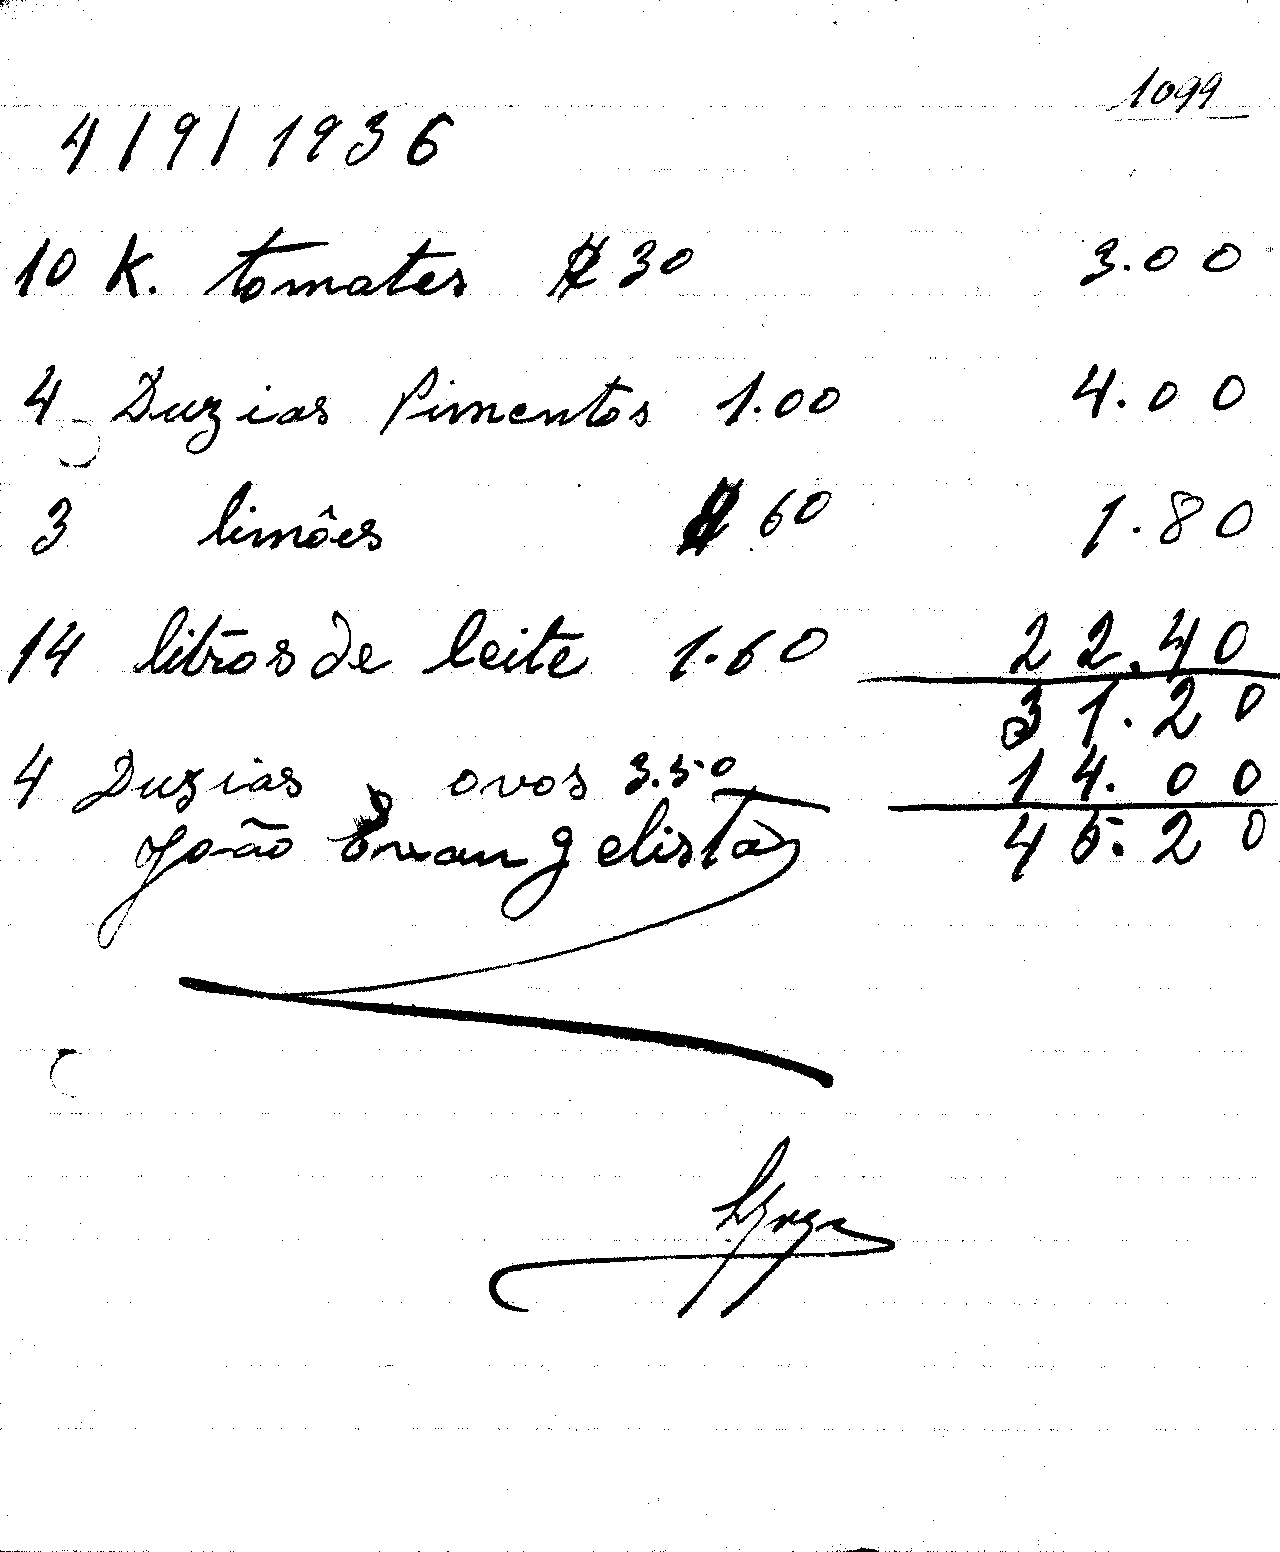 1099
4/9/1936
10 K. tomates $30 3.00
4 Duzias Pimentos 1.00 4.00
3 limôes $60 1.80
14 litros de leite 1.60 22.40
31.20
4 Duzias ovos 3.50 14.00
João Evangelista 45.20